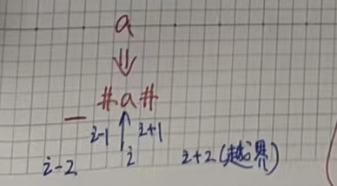 a
#a#
i-1 i+1
i-2 i i+2(越界)